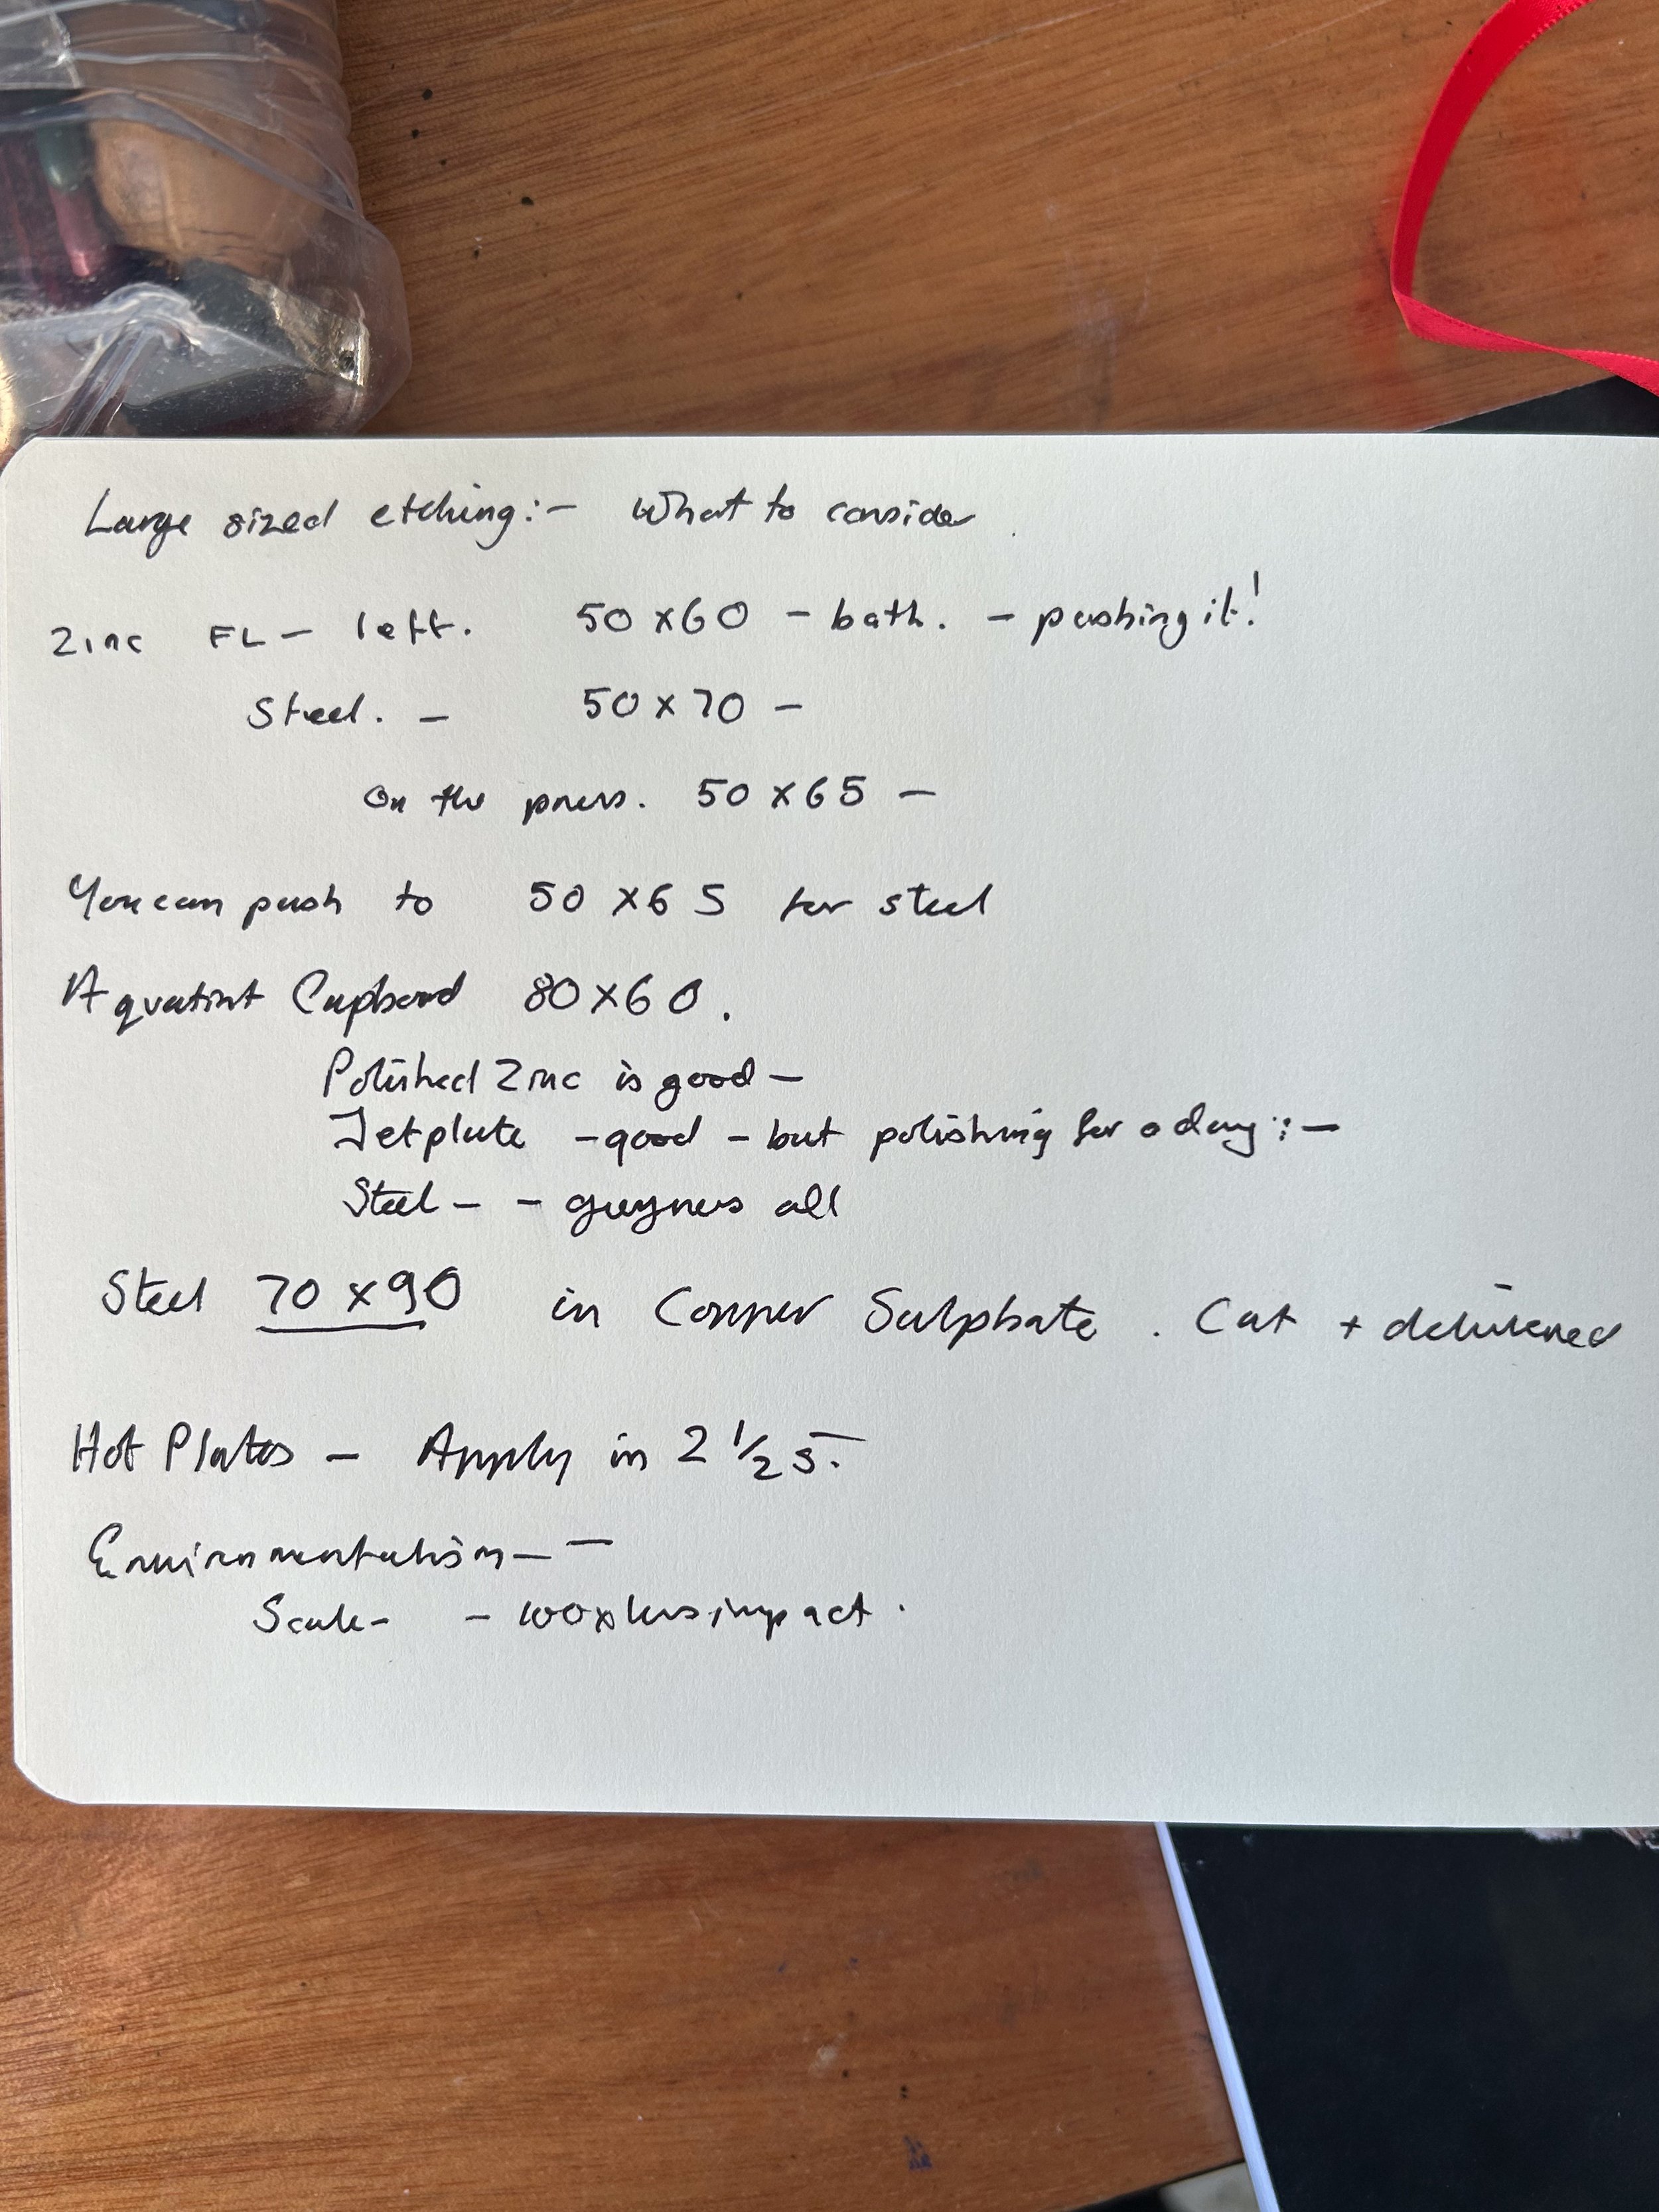 Large sized etching:- What to consider.
Zinc FL - left. 50 x 60 - bath. - pushing it!
Steel. - 50 x 70 -
On the press. 50 x 65 -
You can push to 50 x 65 for steel
Aquatint Cupboard 80 x 60.
Polished Zinc is good -
Jetplate - good - but polishing for a day :-
Steel - - greyness all
Steel 70 x 90 in Copper Sulphate. Cut + delivered
Hot Plates - Apply in 2 1/2 s.
Environmentalism - -
Scale - - 100x less impact.